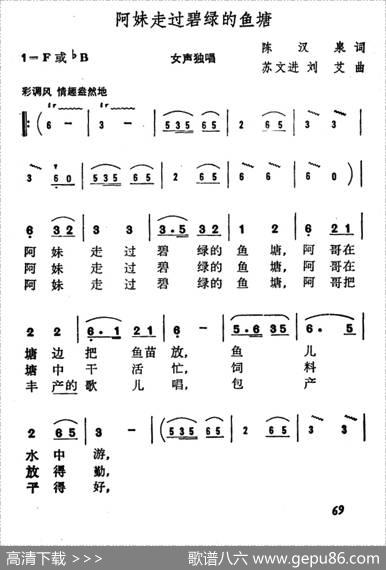 阿妹走过碧绿的鱼塘
陈汉泉词
1=F或♭B 女声独唱
苏文进 刘艾曲
彩调风 情趣盎然地
tr tr
(6 - 3 - 535 65 535 65 2 65
3 60 535 65 535 65 2 6 6 6 60)
6 32 3 3 3·5 32 1 2 6 21
阿妹走过碧绿的鱼塘,阿哥在
阿妹走过碧绿的鱼塘,阿哥在
阿妹走过碧绿的鱼塘,阿哥把
2 2 6·1 21 6 - 5·6 35 6· 5
塘边把鱼苗放,鱼儿
塘中干活忙,饲料
丰产的歌儿唱,包产
2 65 3 - 3 - (535 65 535 65
水中游,
放得勤,
干得好,
69
高清下载 >>> 歌谱八六 www.gepu86.com